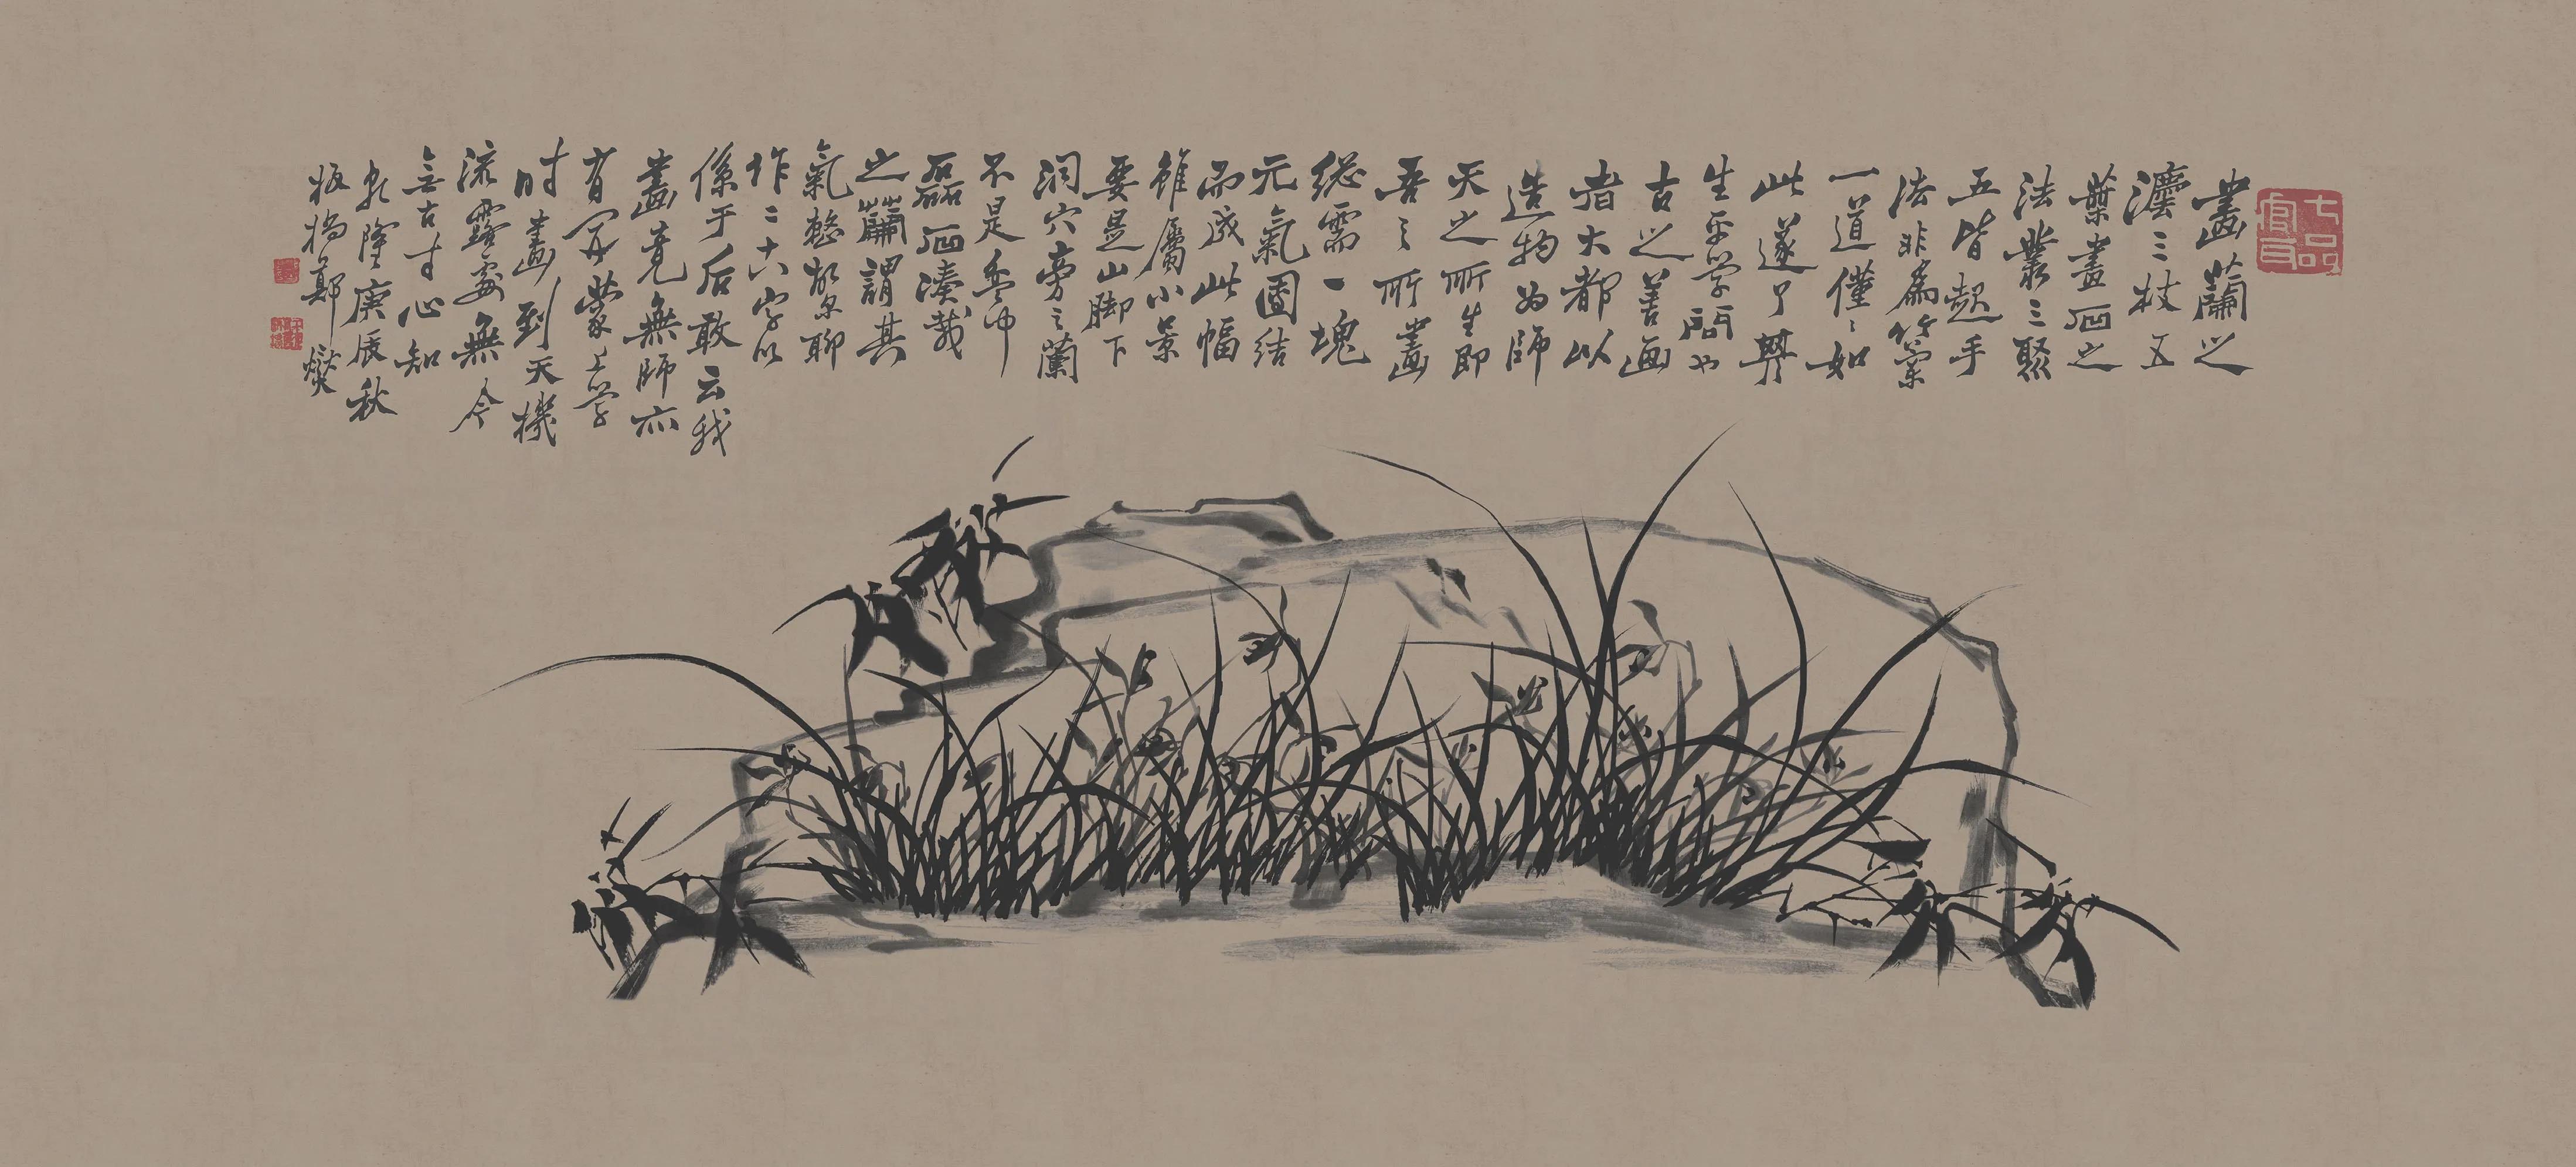 七品官耳
畫蘭之
灋三枝五
葉畫石之
法叢三聚
五皆起手
法非為竹蘭
一道僅僅如
此遂了其
生平學問也
古之善画
者大都以
造物為師
天之所生即
吾之所畫
総需一塊
元氣團結
而成此幅
雖屬小景
要是山脚下
洞穴旁之蘭
不是盆中
磊石湊栽
之蘭謂其
氣整故尔聊
作二十八字以
係于后敢云我
畫竟無師亦
有開蒙上學
时畫到天機
流露處無今
無古寸心知
乾隆庚辰秋
板橋鄭燮